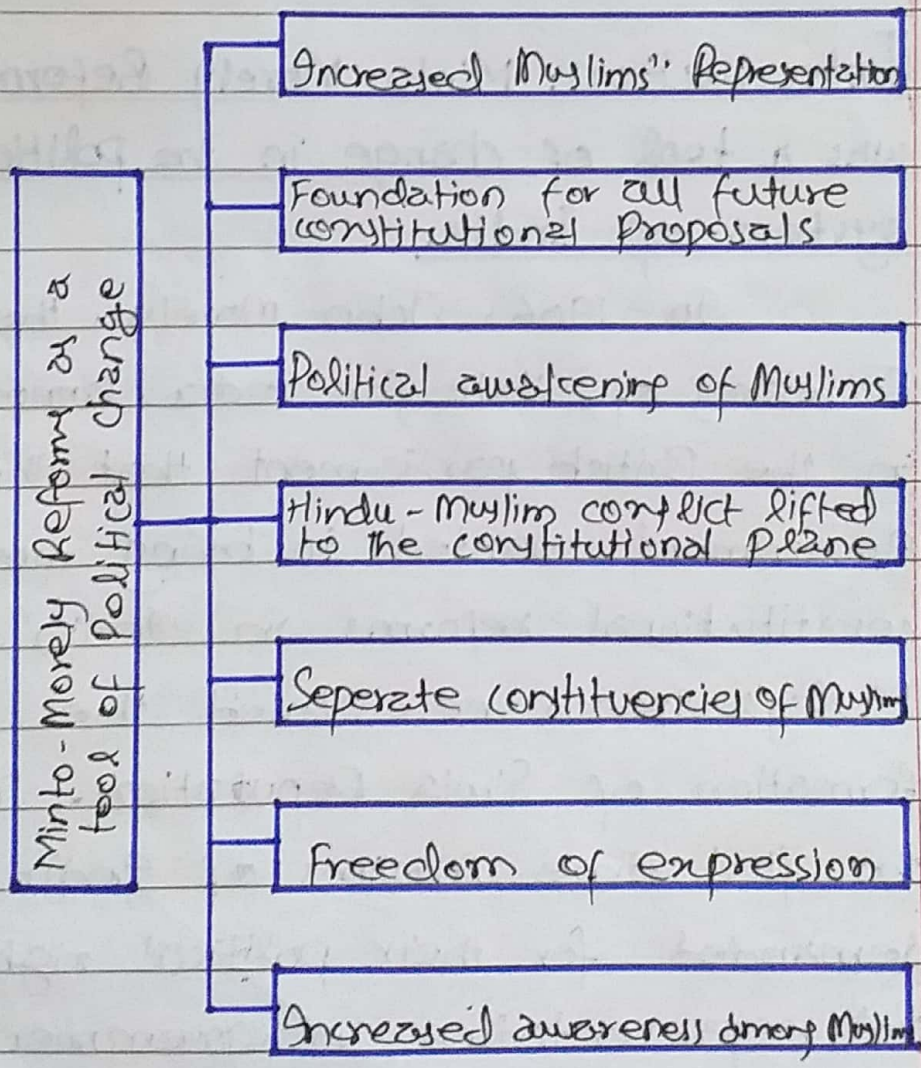 Minto-Morely Reforms as a
tool of Political change
Increased Muslims'' Representation
Foundation for all future
constitutional Proposals
Political awakening of Muslims
Hindu-Muslim conflict lifted
to the constitutional plane
Seperate constituencies of Muslims
Freedom of expression
Increased awareness among Muslims